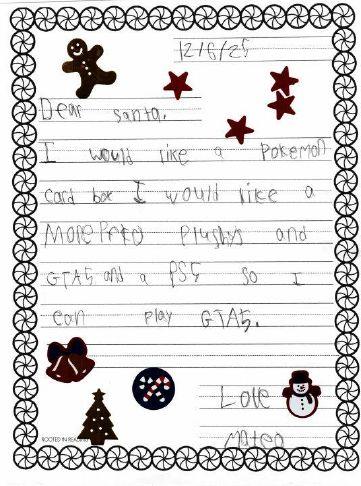 12/6/25
Dear santa,
I would like a Pokemon
card box I would like a
MorePeko Plushys and
GTA5 and a PS5 so I
can play GTA5.
Love
Mateo
ROOTED IN READING